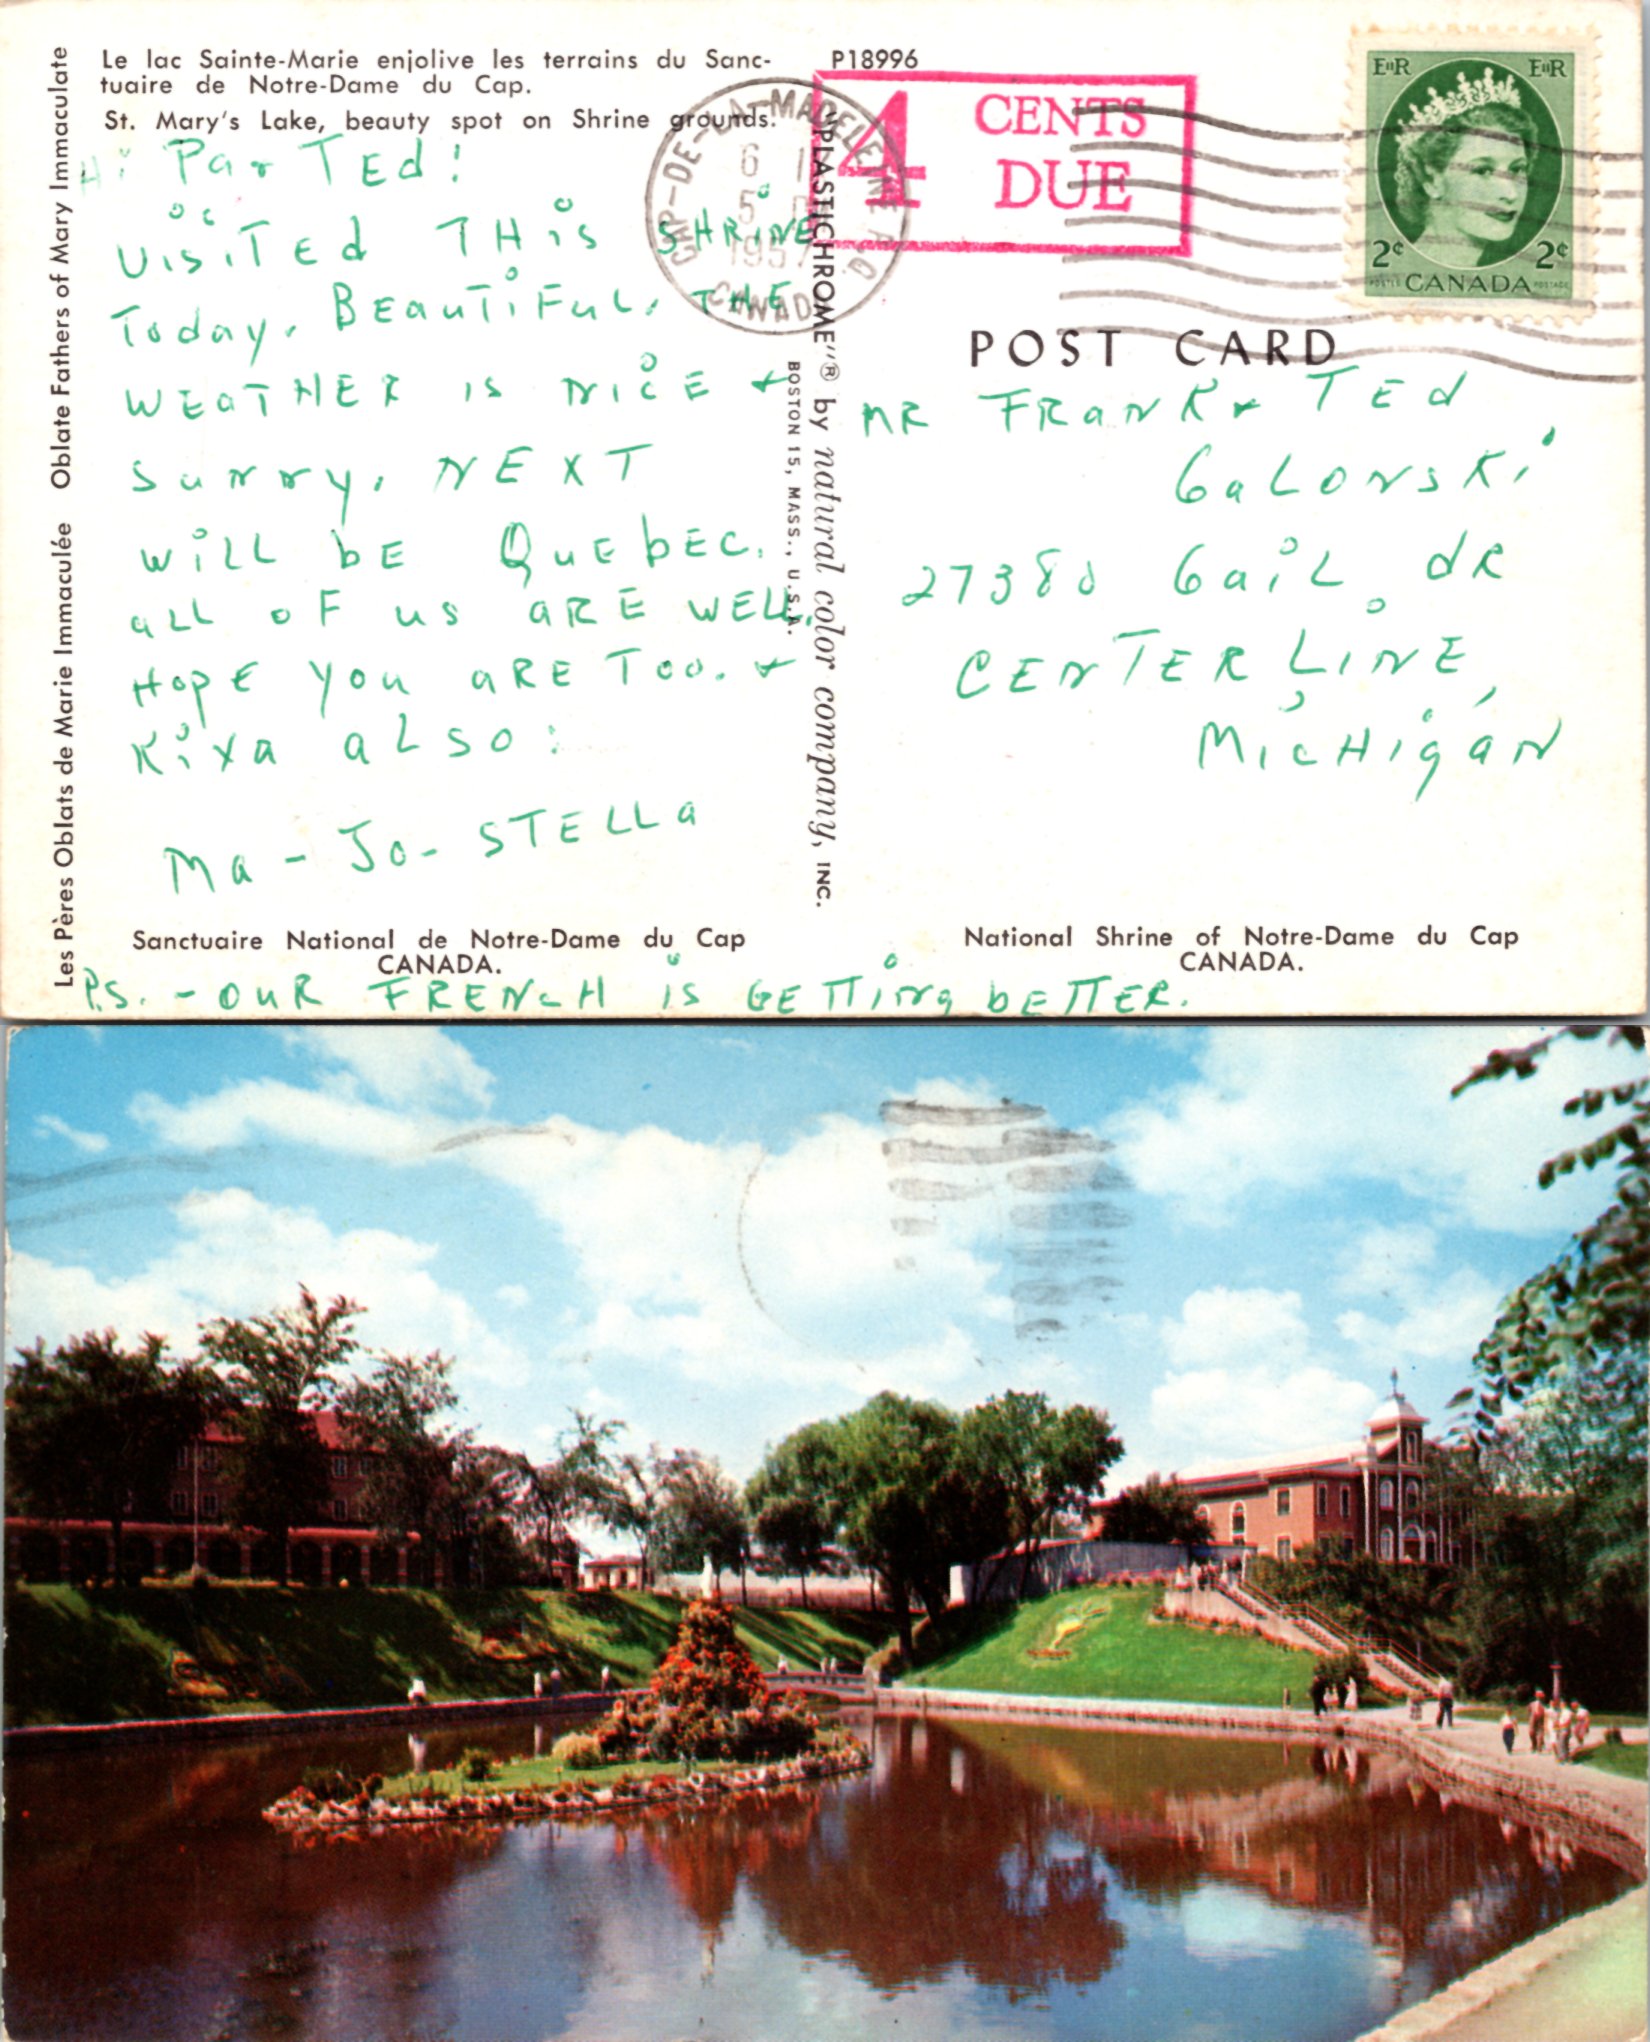 Le lac Sainte-Marie enjolive les terrains du Sanc-
tuaire de Notre-Dame du Cap.
St. Mary's Lake, beauty spot on Shrine grounds.
P18996
Hi Pa & TEd!
VisiTEd THiS SHRiNE
Today. BEauTiFuL, THE
WEaTHER is NiCE &
sunny. NEXT
will bE QuEbEC.
aLL oF us aRE WELL.
HopE You aRE Too. &
Kixa aLso:
Ma - Jo - STELLa
P.S. - OUR FRENcH iS GETTing bETTER.
Les Pères Oblats de Marie Immaculée Oblate Fathers of Mary Immaculate
Sanctuaire National de Notre-Dame du Cap
CANADA.
"PLASTICHROME"® by natural color company, INC.
BOSTON 15, MASS., U.S.A.
CAP-DE-LA-MADELEINE P.Q.
5
1957
CANADA
4 CENTS
DUE
EIIR EIIR
2¢ 2¢
POSTES CANADA POSTAGE
POST CARD
MR FRaNK & TEd
GaLoNsKi
27380 GaiL dR
CENTERLiNE,
MicHigaN
National Shrine of Notre-Dame du Cap
CANADA.